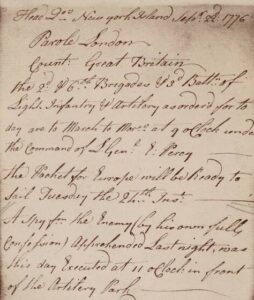 Head Qrs. New york Island Sepr. 22d. 1776
Parole London
Countn. Great Britain
the 2d. & 6th. Brigades & 3d Battn. of
Light Infantry & Artillery as orderd for to
day are to March to Morw. at 9 oClock under
the Command of Lt Genl. E. Percy
the Packet for Europe will be Ready to
Sail Tuesday the 24th. Inst.
A Spy fm. the Enemy (by his own full
Confession) Apprehended Last night, was
this day Executed at 11 oClock in front
of the Artilery Park